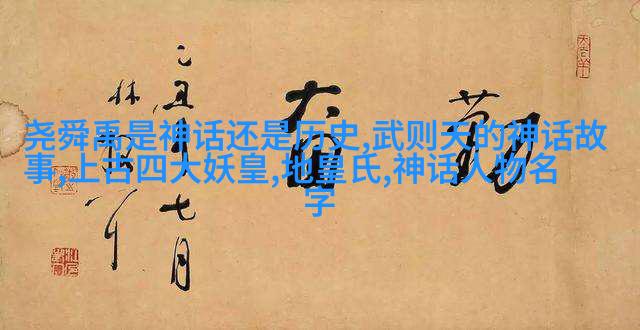 尧舜禹是神话还是历史,武则天的神话故
事,上古四大妖皇,地皇氏,神话人物名
字
勤
乙丑年七月
林